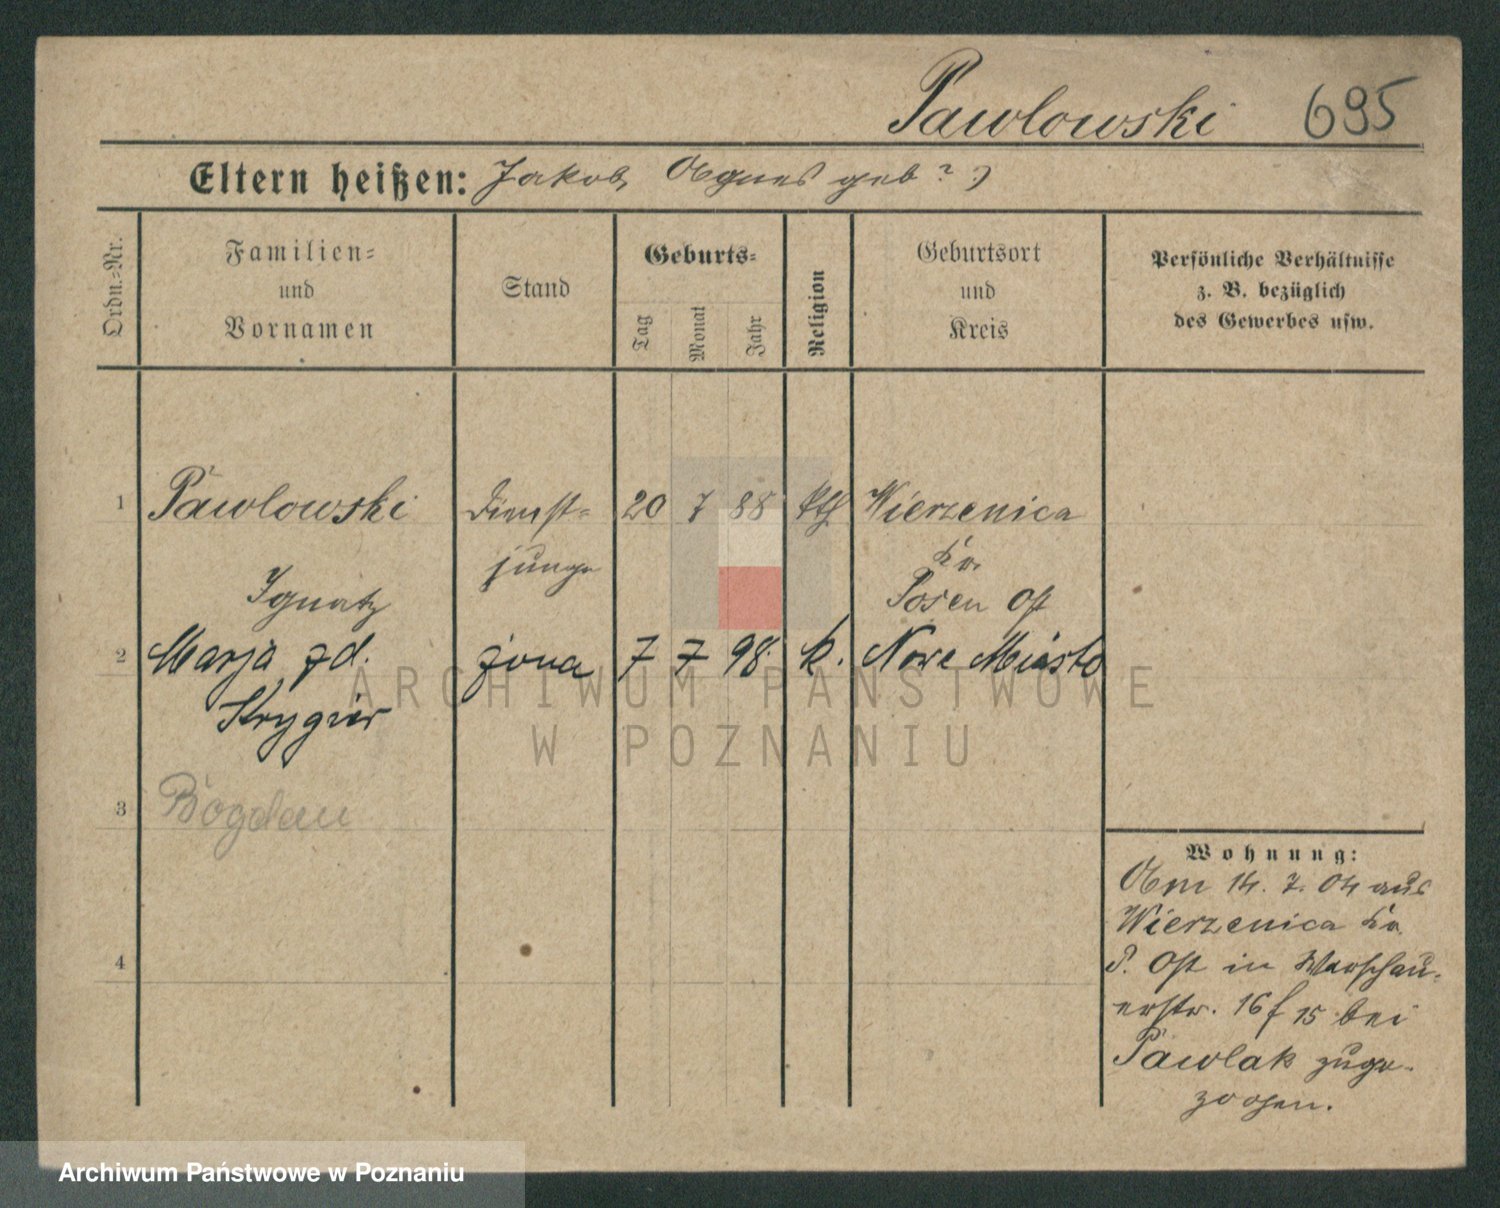 Pawlowski 695
Eltern heißen: Jakob, Agnes geb ? )
Ordn.=Nr.
Familien=
und
Vornamen
Stand
Geburts=
Tag
Monat
Jahr
Religion
Geburtsort
und
Kreis
Persönliche Verhältnisse
z. B. bezüglich
des Gewerbes usw.
1 Pawlowski Dienst= 20 7 88 kth Wierzenica
junge Kr.
Ignatz Posen Ost
2 Marja zd. żona 7 7 98. k. Nowe Miasto
Krygier
3 Bogdan
4
Wohnung:
Am 14. 7. 04 aus
Wierzenica Kr.
P. Ost in Warschau-
erstr. 16 f 15 bei
Pawlak zuge-
zogen.
ARCHIWUM PAŃSTWOWE
W POZNANIU
Archiwum Państwowe w Poznaniu